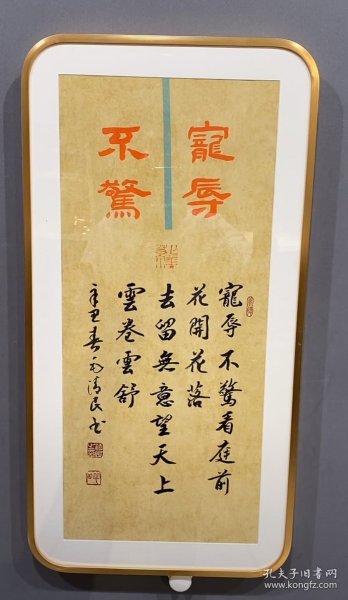 寵辱
不驚
寵辱不驚看庭前
花開花落
去留無意望天上
雲卷雲舒
辛丑春月清民书
孔夫子旧书网
www.kongfz.com